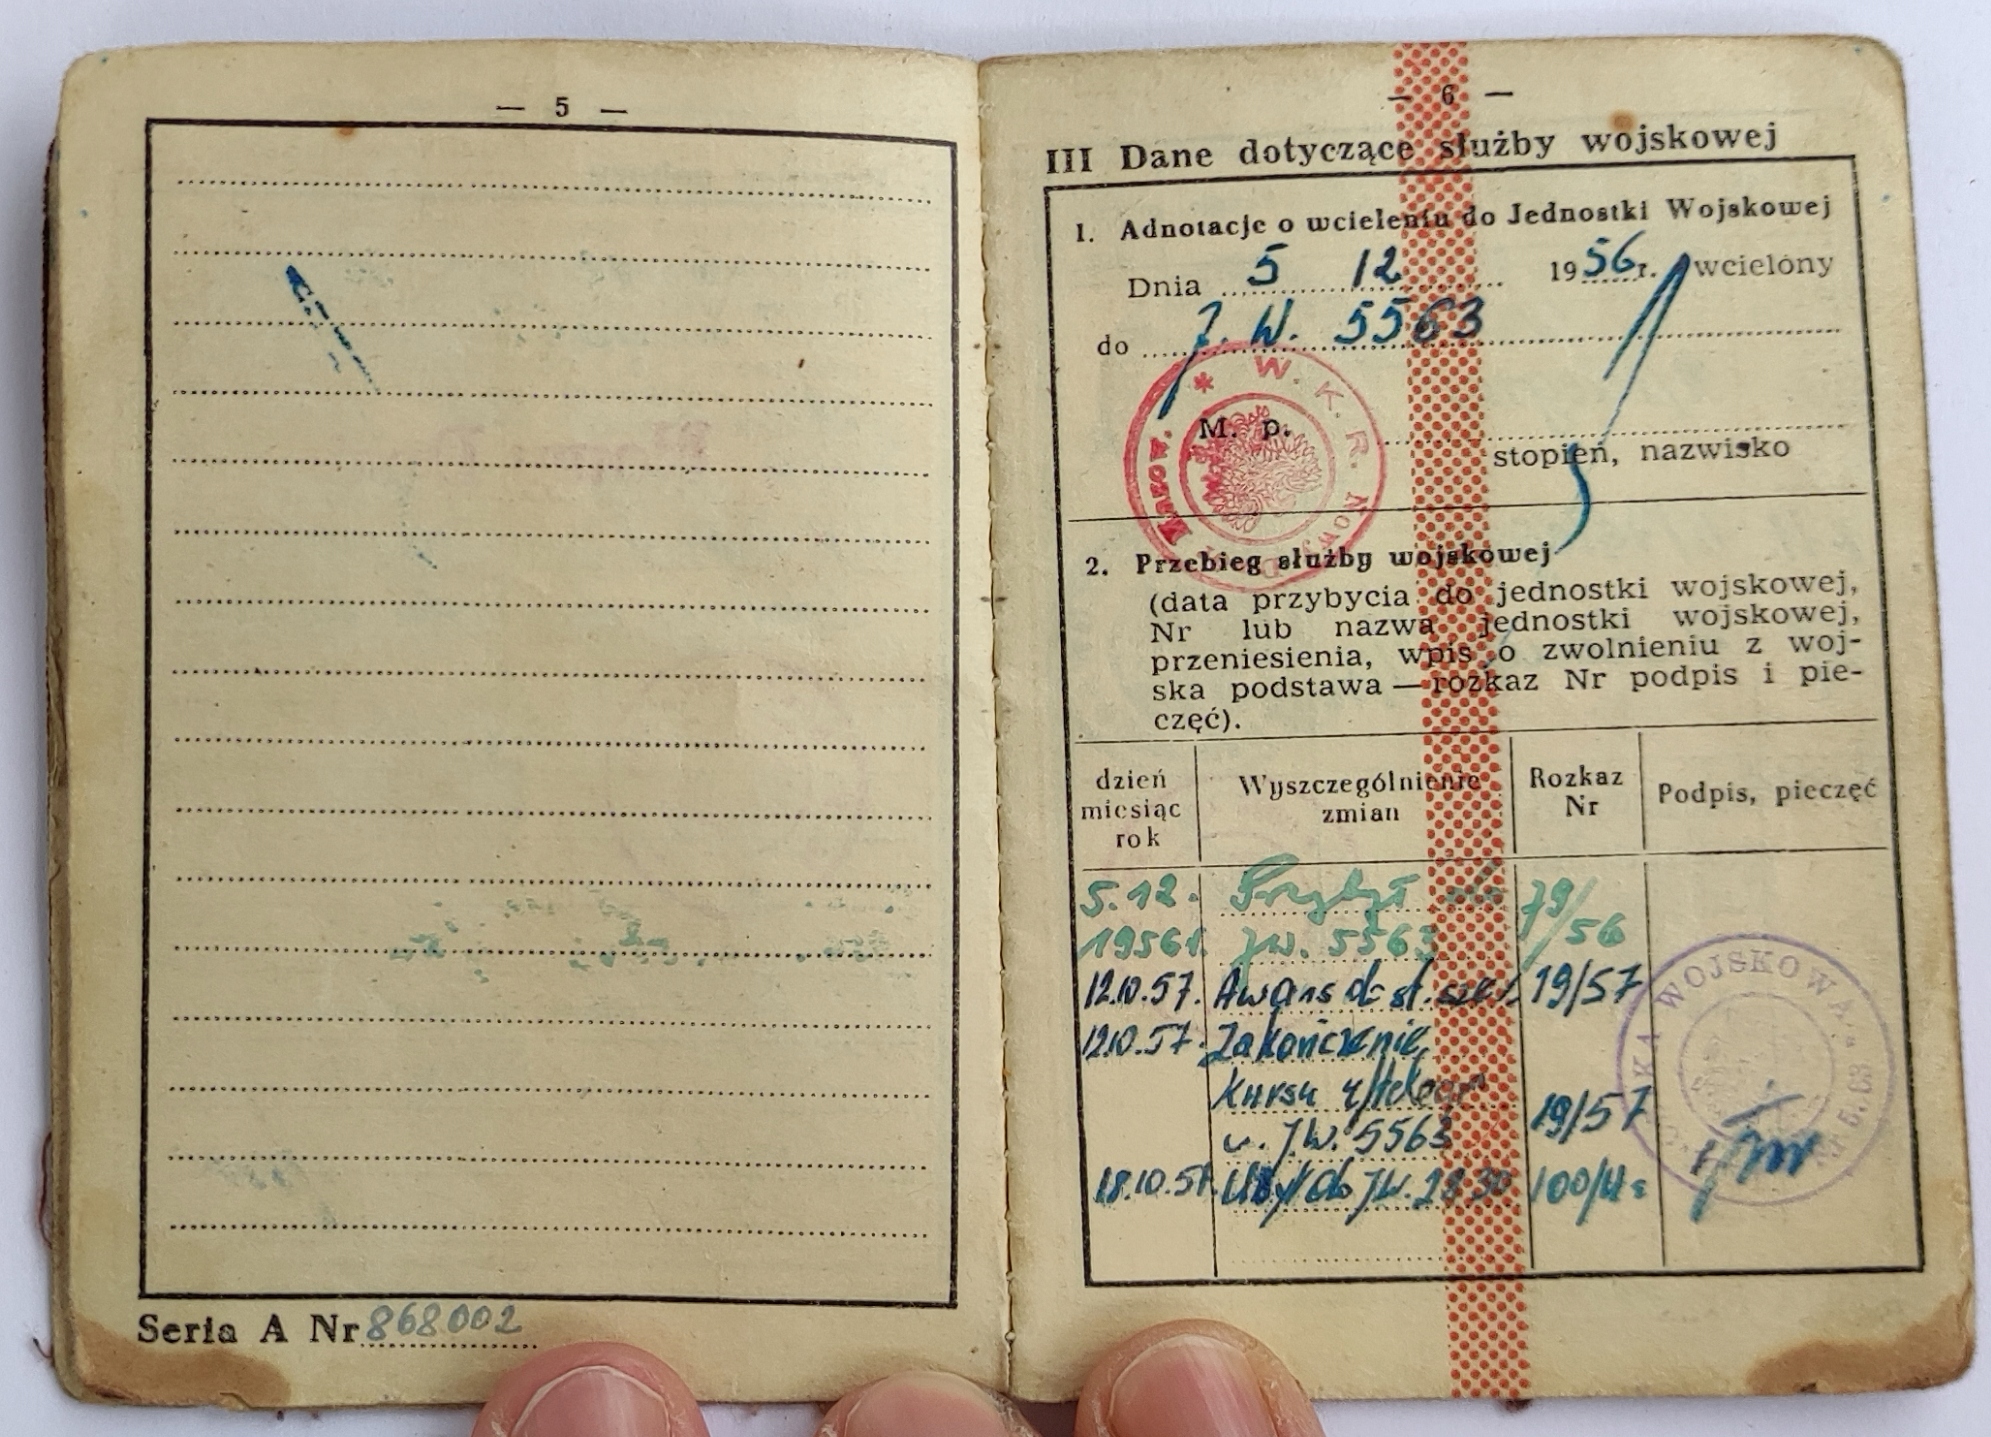 — 5 —
Seria A Nr 868002
— 6 —
III Dane dotyczące służby wojskowej
1. Adnotacje o wcieleniu do Jednostki Wojskowej
Dnia 5 12 1956 r. wcielony
do J. W. 5563
* W. K. R. NOWY DWÓR MAZOW.
M. p.
stopień, nazwisko
2. Przebieg służby wojskowej
(data przybycia do jednostki wojskowej,
Nr lub nazwa jednostki wojskowej,
przeniesienia, wpis o zwolnieniu z woj-
ska podstawa — rozkaz Nr podpis i pie-
częć).
dzień miesiąc rok
Wyszczególnienie zmian
Rozkaz Nr
Podpis, pieczęć
5.12. Przybył do 79/56
1956r. JW. 5563
12.10.57. Awans do st. szer. 19/57
12.10.57. Zakończenie
Kursu r/telegr
w. JW. 5563 19/57
18.10.57. Ubył do JW. 2830
JEDNOSTKA WOJSKOWA Nr 5563